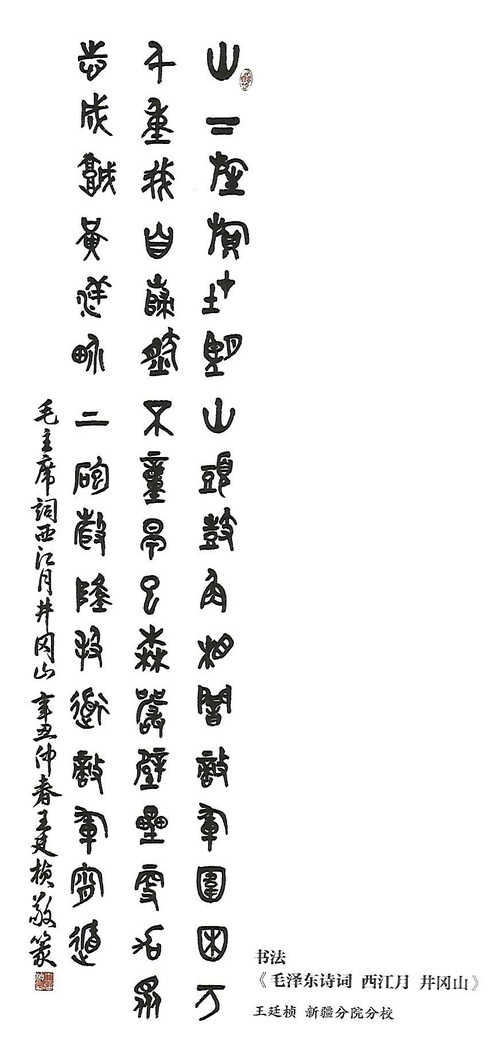 山下旌旗在望山頭鼓角相聞敵軍圍困万
千重我自巋然不動早已森嚴壁壘更加衆
志成城黃洋界上砲聲隆報道敵軍宵遁
毛主席詞西江月井冈山 辛丑仲春王廷楨敬篆
书法
《毛泽东诗词 西江月 井冈山》
王廷桢 新疆分院分校